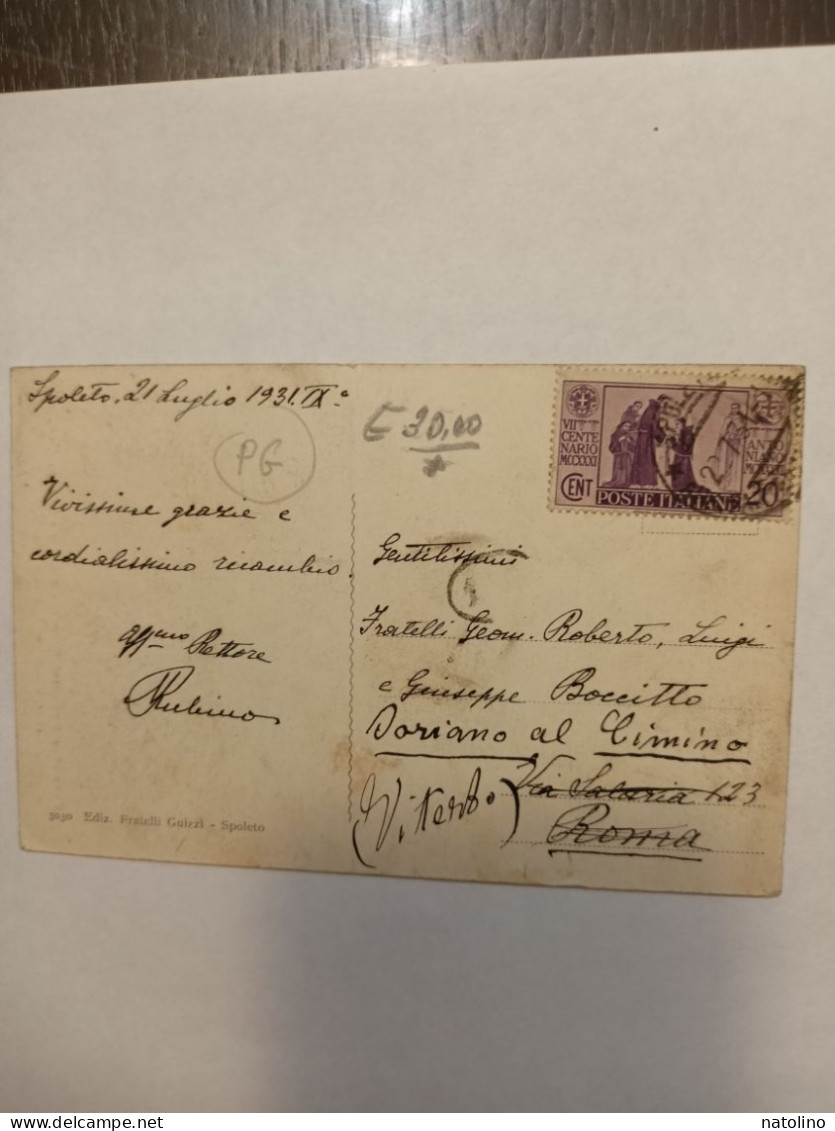 Spoleto, 21 Luglio 1931.IX°
PG
€ 30,00
Vivissime grazie e
cordialissimo ricambio.
aff.mo Rettore
Rubino
3030 Ediz. Fratelli Guizzi - Spoleto
VII
CENTE
NARIO
MCCXXXI
ANTO
NIANO
CENT
POSTE ITALIANE
20
Gentilissimi
Fratelli Geom. Roberto, Luigi
e Giuseppe Boccitto
Soriano al Cimino
(Viterbo)
Via Salaria 123
Roma
natolino